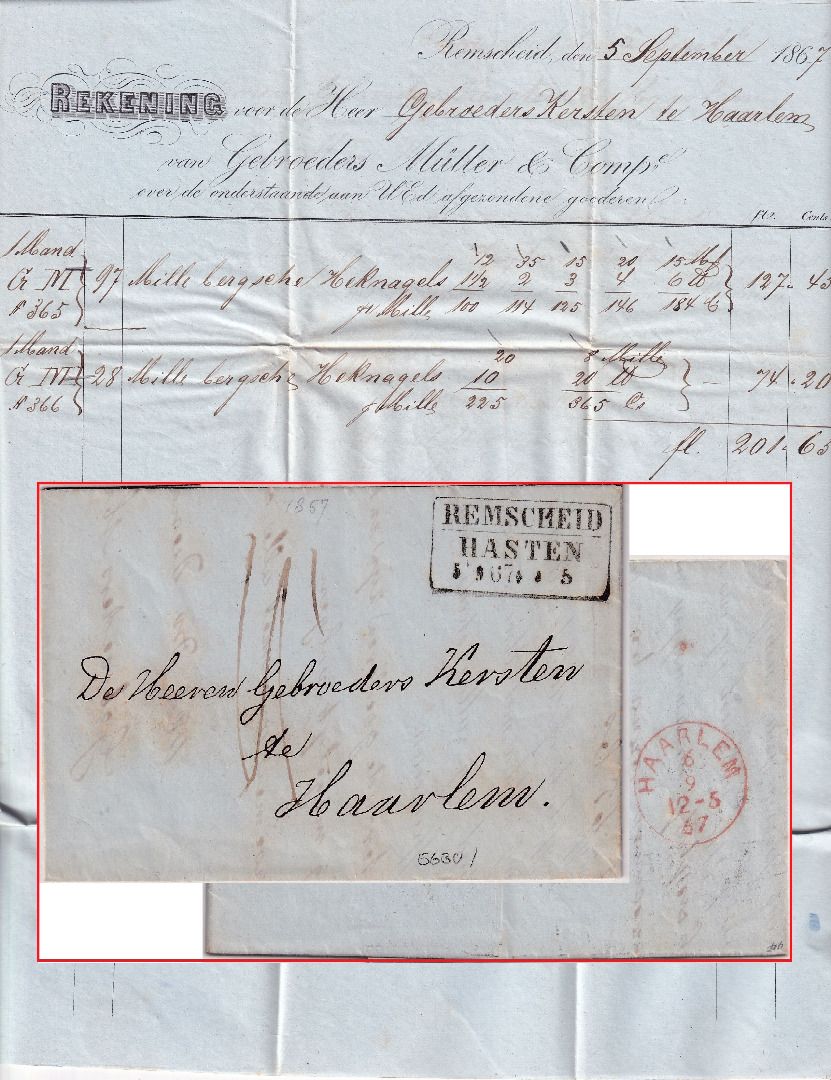 Remscheid, den 5 September 1867
REKENING voor de Heer Gebroeders Kersten te Haarlem
van Gebroeders Müller & Comp.
over de onderstaande aan UEd afgezondene goederen.
fls. Cents
1 Mand 12 35 15 20 15 Mll
G M 97 Mille bergsche Heknagels 1½ 2 3 4 6 ℔ 127. 45
№ 365 pr Mille 100 114 125 146 184 C
1 Mand 20 8 Mille
G M 28 Mille bergsche Heknagels 10 20 ℔ 74. 20
№ 366 pr Mille 225 365 Cs
fl. 201. 65
1857
REMSCHEID
HASTEN
5 9 67 5
De Heeren Gebroeders Kersten
te
Haarlem.
6630/
HAARLEM
6
9
12-5
67